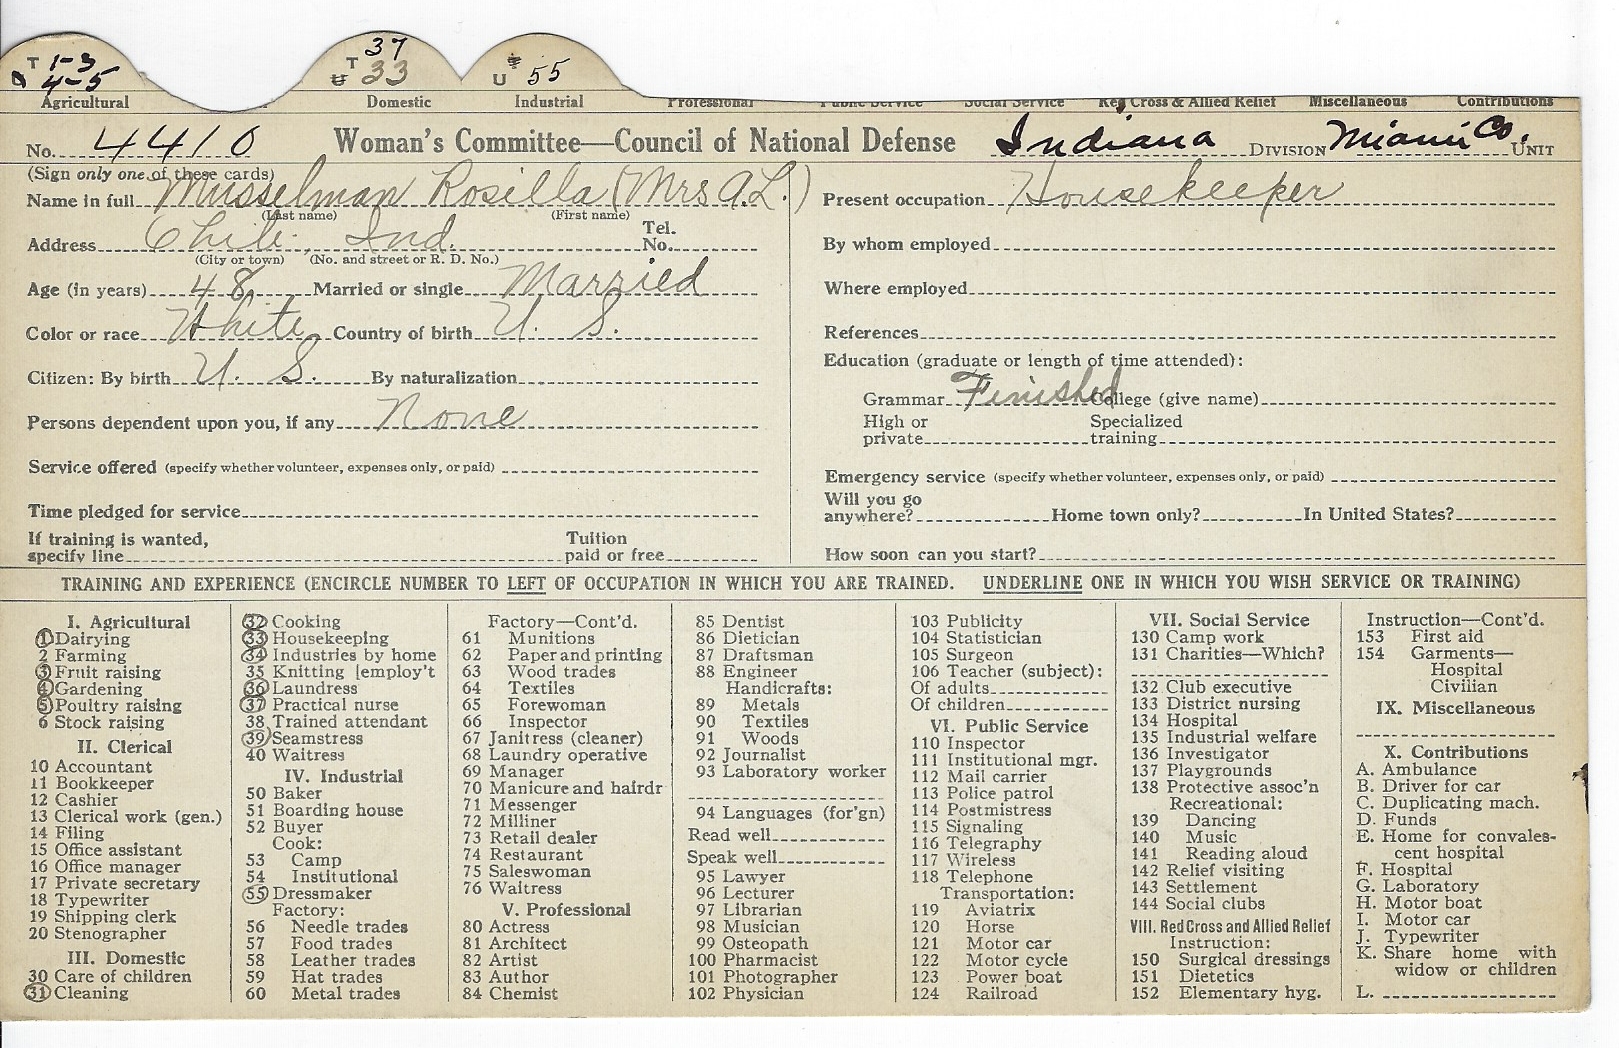 T 1-3 T 37 U 55
4-5 33
Agricultural Domestic Industrial Professional Public Service Social Service Red Cross & Allied Relief Miscellaneous Contributions
No. 4410 Woman's Committee—Council of National Defense Indiana DIVISION Miami Co. UNIT
(Sign only one of these cards)
Name in full Musselman Rosilla (Mrs A.L.)
(Last name) (First name)
Address Chili, Ind. Tel. No.
(City or town) (No. and street or R. D. No.)
Age (in years) 48 Married or single Married
Color or race White Country of birth U. S.
Citizen: By birth U. S. By naturalization
Persons dependent upon you, if any None
Service offered (specify whether volunteer, expenses only, or paid)
Time pledged for service
If training is wanted, Tuition
specify line paid or free
Present occupation Housekeeper
By whom employed
Where employed
References
Education (graduate or length of time attended):
Grammar Finished College (give name)
High or Specialized
private training
Emergency service (specify whether volunteer, expenses only, or paid)
Will you go
anywhere? Home town only? In United States?
How soon can you start?
TRAINING AND EXPERIENCE (ENCIRCLE NUMBER TO LEFT OF OCCUPATION IN WHICH YOU ARE TRAINED. UNDERLINE ONE IN WHICH YOU WISH SERVICE OR TRAINING)
I. Agricultural
1 Dairying
2 Farming
3 Fruit raising
4 Gardening
5 Poultry raising
6 Stock raising
II. Clerical
10 Accountant
11 Bookkeeper
12 Cashier
13 Clerical work (gen.)
14 Filing
15 Office assistant
16 Office manager
17 Private secretary
18 Typewriter
19 Shipping clerk
20 Stenographer
III. Domestic
30 Care of children
31 Cleaning
32 Cooking
33 Housekeeping
34 Industries by home
35 Knitting [employ't
36 Laundress
37 Practical nurse
38 Trained attendant
39 Seamstress
40 Waitress
IV. Industrial
50 Baker
51 Boarding house
52 Buyer
Cook:
53 Camp
54 Institutional
55 Dressmaker
Factory:
56 Needle trades
57 Food trades
58 Leather trades
59 Hat trades
60 Metal trades
Factory—Cont'd.
61 Munitions
62 Paper and printing
63 Wood trades
64 Textiles
65 Forewoman
66 Inspector
67 Janitress (cleaner)
68 Laundry operative
69 Manager
70 Manicure and hairdr
71 Messenger
72 Milliner
73 Retail dealer
74 Restaurant
75 Saleswoman
76 Waitress
V. Professional
80 Actress
81 Architect
82 Artist
83 Author
84 Chemist
85 Dentist
86 Dietician
87 Draftsman
88 Engineer
Handicrafts:
89 Metals
90 Textiles
91 Woods
92 Journalist
93 Laboratory worker
94 Languages (for'gn)
Read well
Speak well
95 Lawyer
96 Lecturer
97 Librarian
98 Musician
99 Osteopath
100 Pharmacist
101 Photographer
102 Physician
103 Publicity
104 Statistician
105 Surgeon
106 Teacher (subject):
Of adults
Of children
VI. Public Service
110 Inspector
111 Institutional mgr.
112 Mail carrier
113 Police patrol
114 Postmistress
115 Signaling
116 Telegraphy
117 Wireless
118 Telephone
Transportation:
119 Aviatrix
120 Horse
121 Motor car
122 Motor cycle
123 Power boat
124 Railroad
VII. Social Service
130 Camp work
131 Charities—Which?
132 Club executive
133 District nursing
134 Hospital
135 Industrial welfare
136 Investigator
137 Playgrounds
138 Protective assoc'n
Recreational:
139 Dancing
140 Music
141 Reading aloud
142 Relief visiting
143 Settlement
144 Social clubs
VIII. Red Cross and Allied Relief
Instruction:
150 Surgical dressings
151 Dietetics
152 Elementary hyg.
Instruction—Cont'd.
153 First aid
154 Garments—
Hospital
Civilian
IX. Miscellaneous
X. Contributions
A. Ambulance
B. Driver for car
C. Duplicating mach.
D. Funds
E. Home for convales-
cent hospital
F. Hospital
G. Laboratory
H. Motor boat
I. Motor car
J. Typewriter
K. Share home with
widow or children
L.